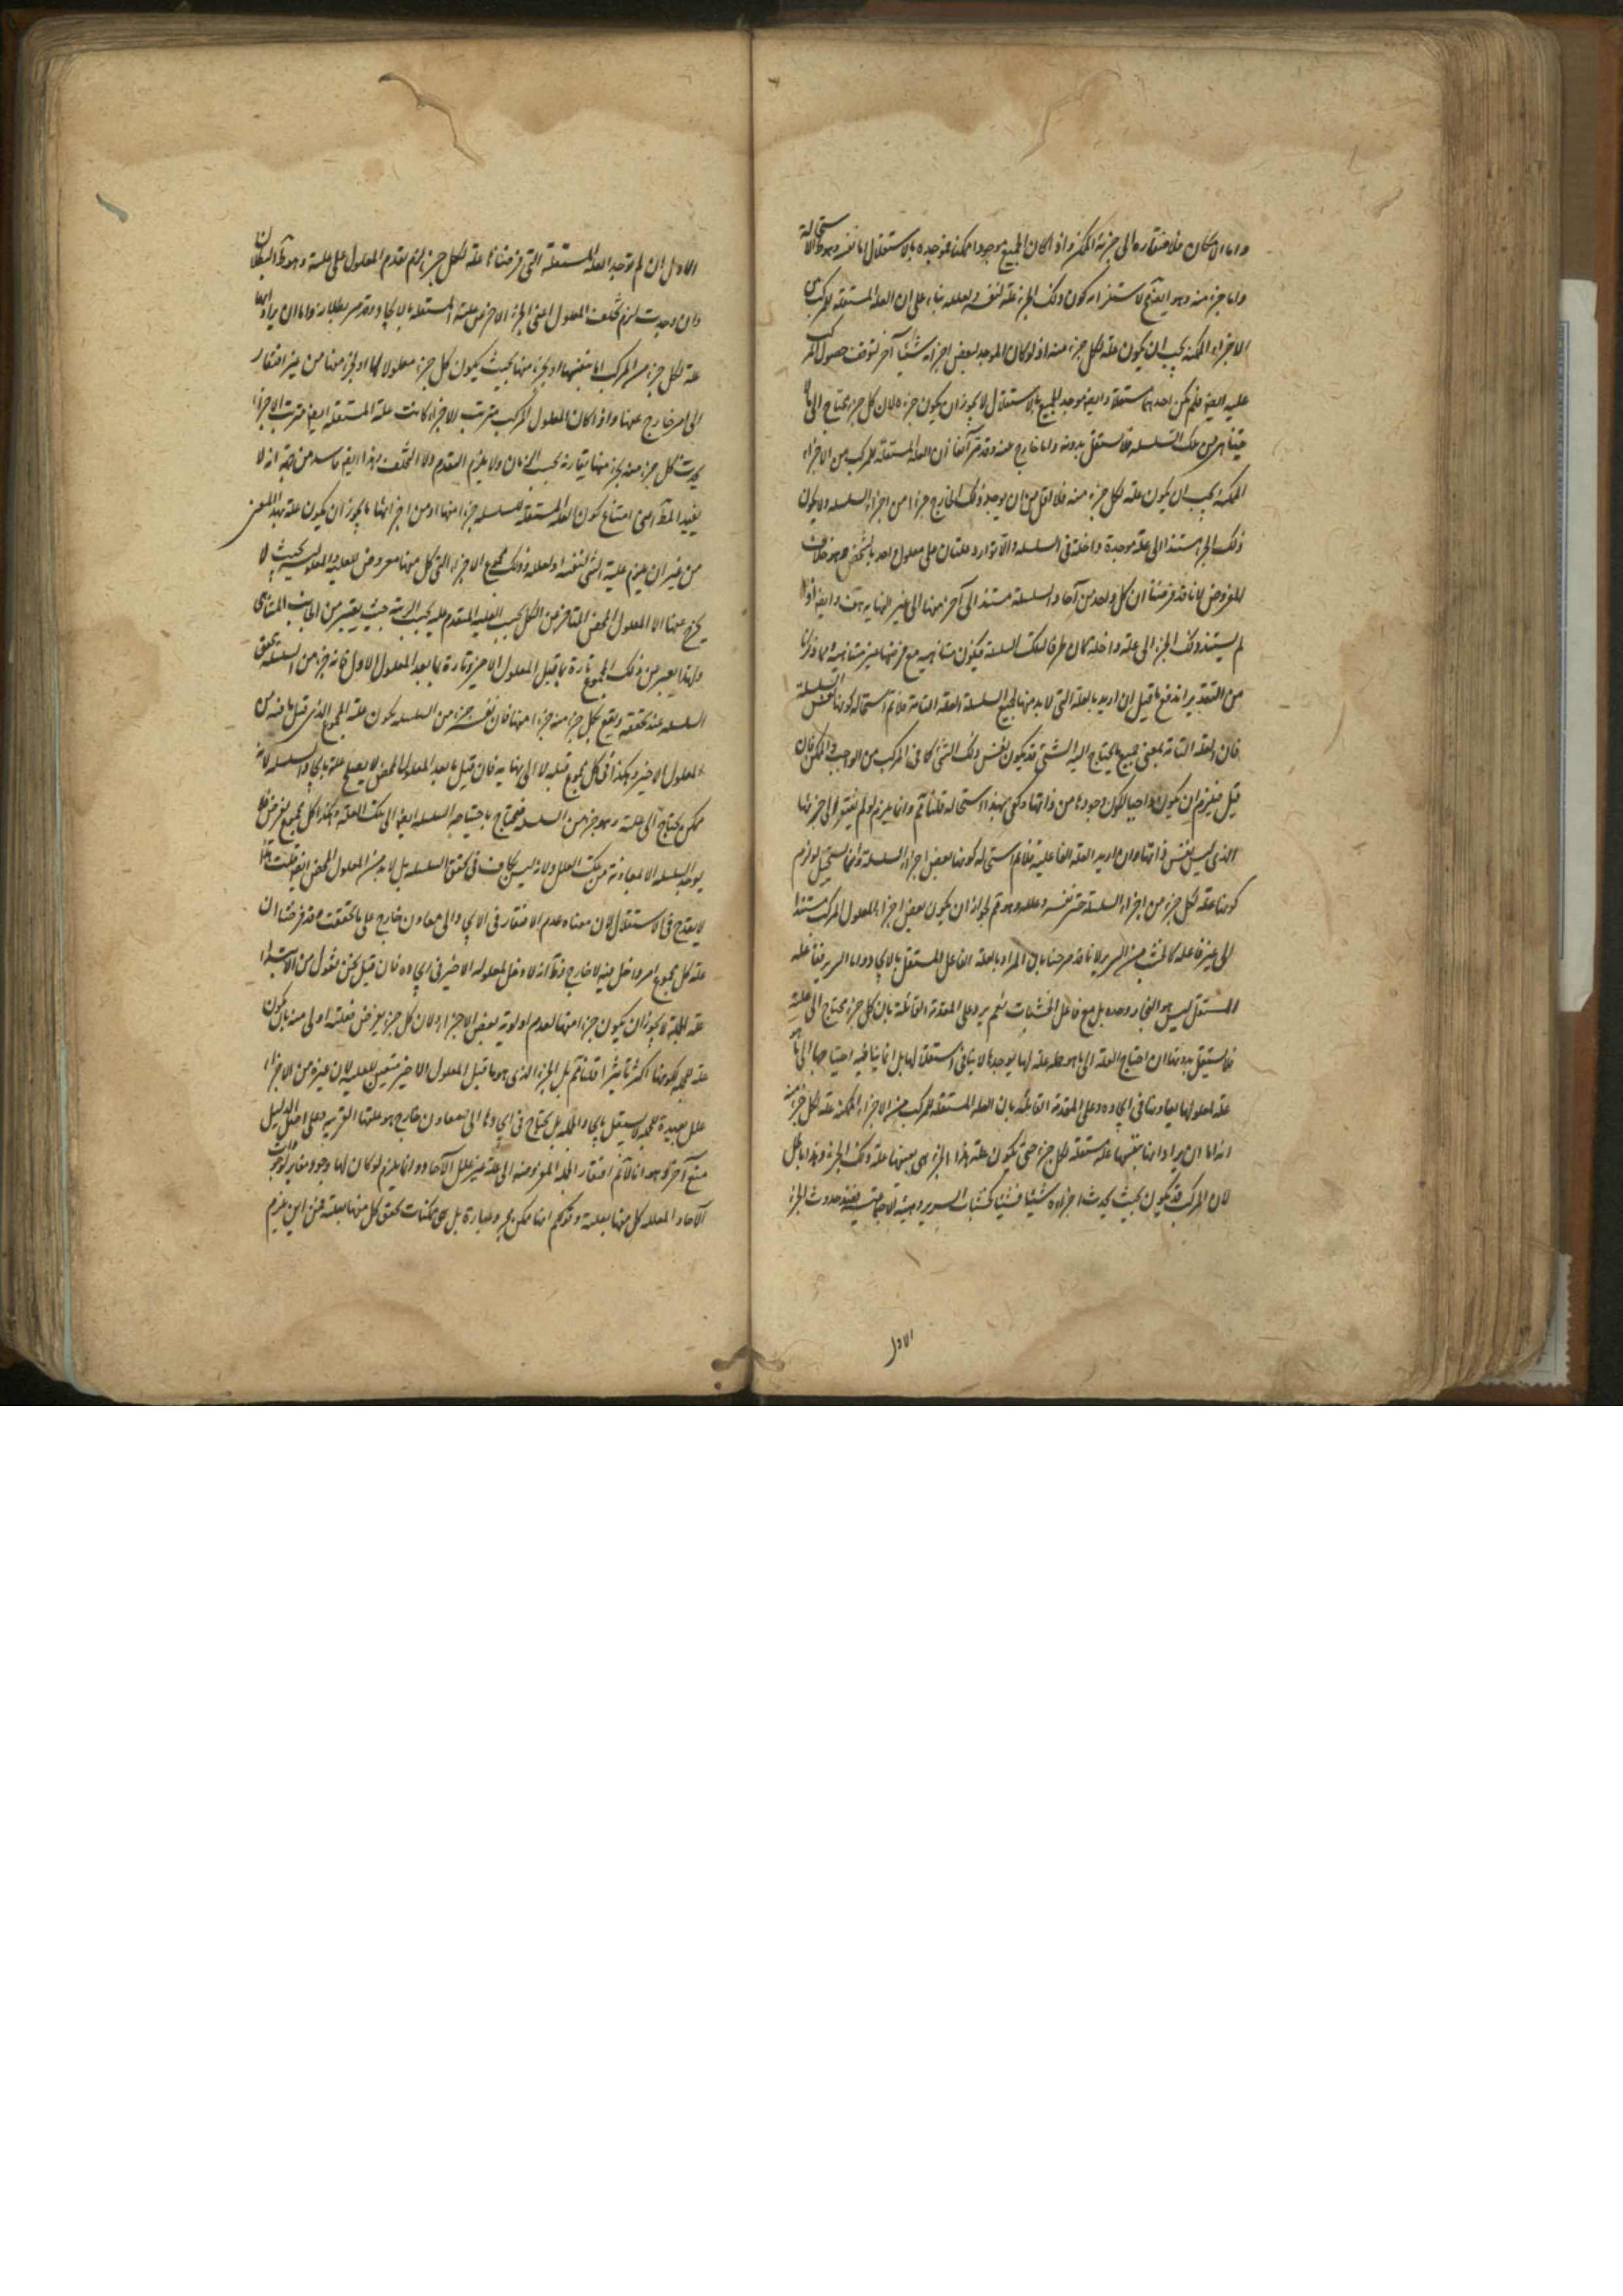 واما الامكان فلافتقاره الى جزئه الممكن واذا كان الجميع موجودا ممكنا فموجده بالاستقلال اما نفسه وهو ظ الاستحالة
واما جزء منه وهو ايضا مح لاستلزامه كون ذلك الجزء علة لنفسه ولعلله بناء على ان العلة المستقلة للمركب من
الاجزاء الممكنة يجب ان يكون علة لكل جزء منه اذ لو كان الموجد لبعض اجزائه شيئا آخر لتوقف حصول المركب
عليه ايضا فلم يكن احدهما مستقلا وايضا موجد الجميع بالاستقلال لا يجوز ان يكون جزءه لان كل جزء يحتاج الى ما لا
يتناهى من تلك السلسلة فلا يستقل بدونه واما خارج عنه وقد مر آنفا ان العلة المستقلة للمركب من الاجزاء
الممكنة يجب ان يكون علة لكل جزء منه فلا اقل من ان يوجد ذلك الخارج جزءا من اجزاء السلسلة ولا يكون
ذلك الجزء مستندا الى علة موجدة داخلة في السلسلة والا توارد علتان على معلول واحد بالشخص هو خلاف
المفروض لانا قد فرضنا ان كل واحد من آحاد السلسلة مستند الى آخر منها الى غير النهاية هف وايضا اذا
لم يستند ذلك الجزء الى علة داخلة كان طرفا لتلك السلسلة فيكون متناهية مع فرضها غير متناهية وبما ذكرنا
من التقدير اندفع ما قيل ان اريد بالعلة التي لا بد منها لجميع السلسلة العلة التامة فلا نم استحالة كونها نفس السلسلة
فان العلة التامة بمعنى جميع ما يحتاج اليه الشيء قد يكون نفس ذلك الشيء كما في المركب من الواجب والممكن فان
قيل فيلزم ان يكون واجبا لكون وجودها من ذاتها وكفى بهذا استحالة قلنا مم وانما يلزم لو لم يفتقر الى جزئها
الذي ليس نفس ذاتها وان اريد العلة الفاعلية فلا نم استحالة كونها بعض اجزاء السلسلة وانما يستحيل لو لزم
كونها علة لكل جزء من اجزاء السلسلة حتى نفسه وعلله وهو مم لجواز ان يكون بعض اجزاء المعلول المركب مستندا
الى غير فاعله كالخشب من السرير لانا قد صرحنا بان المراد بالعلة الفاعل المستقل بالايجاد واما السرير ففاعله
المستقل ليس هو النجار وحده بل مع فاعل الخشبات نعم يرد على المقدمة القائلة بان كل جزء محتاج الى علته
فلا يستقل بدونها ان احتياج العلة الى ما هو علة لها يوجدها لا ينافي استقلالها بل انما ينافيه احتياجها الى ما هو
علة لمعلولها يعاونها في ايجاده وعلى المقدمة القائلة بان العلة المستقلة للمركب من الاجزاء الممكنة علة لكل جزء منه
انه اما ان يراد انها بنفسها علة مستقلة لكل جزء حتى تكون علة هذا الجزء هي بعينها علة ذلك الجزء وهذا باطل
لان المركب قد يكون بحيث يحدث اجزاءه شيئا فشيئا كخشبات السرير وهيئته الاجتماعية فعند حدوث الجزء
الاول
الاول ان لم توجد العلة المستقلة التي فرضناها علة لكل جزء لزم تقدم المعلول على علته وهو ظ البطلان
وان وجدت لزم تخلف المعلول اعني الجزء الآخر عن علته المستقلة بالايجاد وقد مر بطلانه واما ان يراد انها
علة لكل جزء من المركب اما بنفسها او بجزء منها بحيث يكون كل جزء معلولا لها او لجزء منها من غير افتقار
الى امر خارج عنها واذا كان المعلول المركب مترتب الاجزاء كانت علته المستقلة ايضا مترتبة الاجزاء
يحدث كل جزء منه بجزء منها يقارنه بحسب الزمان ولا يلزم التقدم ولا التخلف وهذا ايضا فاسد من جهة انه لا
يفيد المط اعني امتناع كون العلة المستقلة للسلسلة جزءا منها او من اجزائها اذ يجوز ان يكون علة بهذا المعنى
من غير ان يلزم علية الشيء لنفسه او لعلله وذلك مجموع الاجزاء التي كل منها معروض للعلية والمعلولية بحيث لا
يخرج عنها الا المعلول المحض المتاخر عن الكل بحسب العلية المتقدم عليه بحسب الرتبة حيث يعتبر من الجانب المتناهي
ولهذا يعبر عن ذلك المجموع تارة بما قبل المعلول الاخير وتارة بما بعد المعلول الاول فانه جزء من السلسلة تتحقق
السلسلة عند تحققه ويقع بكل جزء منه جزء منها فان نفس جزء من السلسلة يكون علة المجموع الذي قبل ما فيه من
المعلول الاخير وهكذا في كل مجموع قبله لا الى نهاية فان قيل ما بعد المعلول المحض لا يصلح علة بايجاد السلسلة لانه
ممكن يحتاج الى علة وهو جزء من السلسلة فيحتاج باحتياجه السلسلة ايضا الى تلك العلة وهكذا كل مجموع يفرض فلا
يوجد السلسلة الا بمعاونة من تلك العلل ولانه ليس بكاف في تحقق السلسلة بل لا بد من المعلول المحض ايضا قلت هذا
لا يقدح في الاستقلال لان معناه عدم الافتقار في الايجاد الى معاون خارج على ما تحققت وقد فرضنا ان
علة كل مجموع امر داخل فيه لا خارج وظ انه لا دخل لمعلوله الاخير في ايجاده فان قيل نحن نقول من الابتداء
علة الجملة لا يجوز ان يكون جزءا منها لعدم اولوية بعض الاجزاء ولان كل جزء يفرض فعلته اولى منه بان يكون
علة للجملة لكونها اكثر تاثيرا قلنا مم بل الجزء الذي هو ما قبل المعلول الاخير متعين للعلية لان غيره من الاجزاء
علل بعيدة للجملة لا يستقل بايجاد الجملة بل يحتاج في ايجادها الى معاون خارج هو علتها القريبة وعلى اصل الدليل
منع آخر وهو انا لا نم افتقار الجملة المفروضة الى علة غير علل الآحاد وانما يلزم لو كان لها وجود مغاير لوجودات
الآحاد المعلل كل منها بعلته وقولكم انها ممكن مجرد عبارة بل هي ممكنات تحقق كل منها بعلته فمن اين يلزم